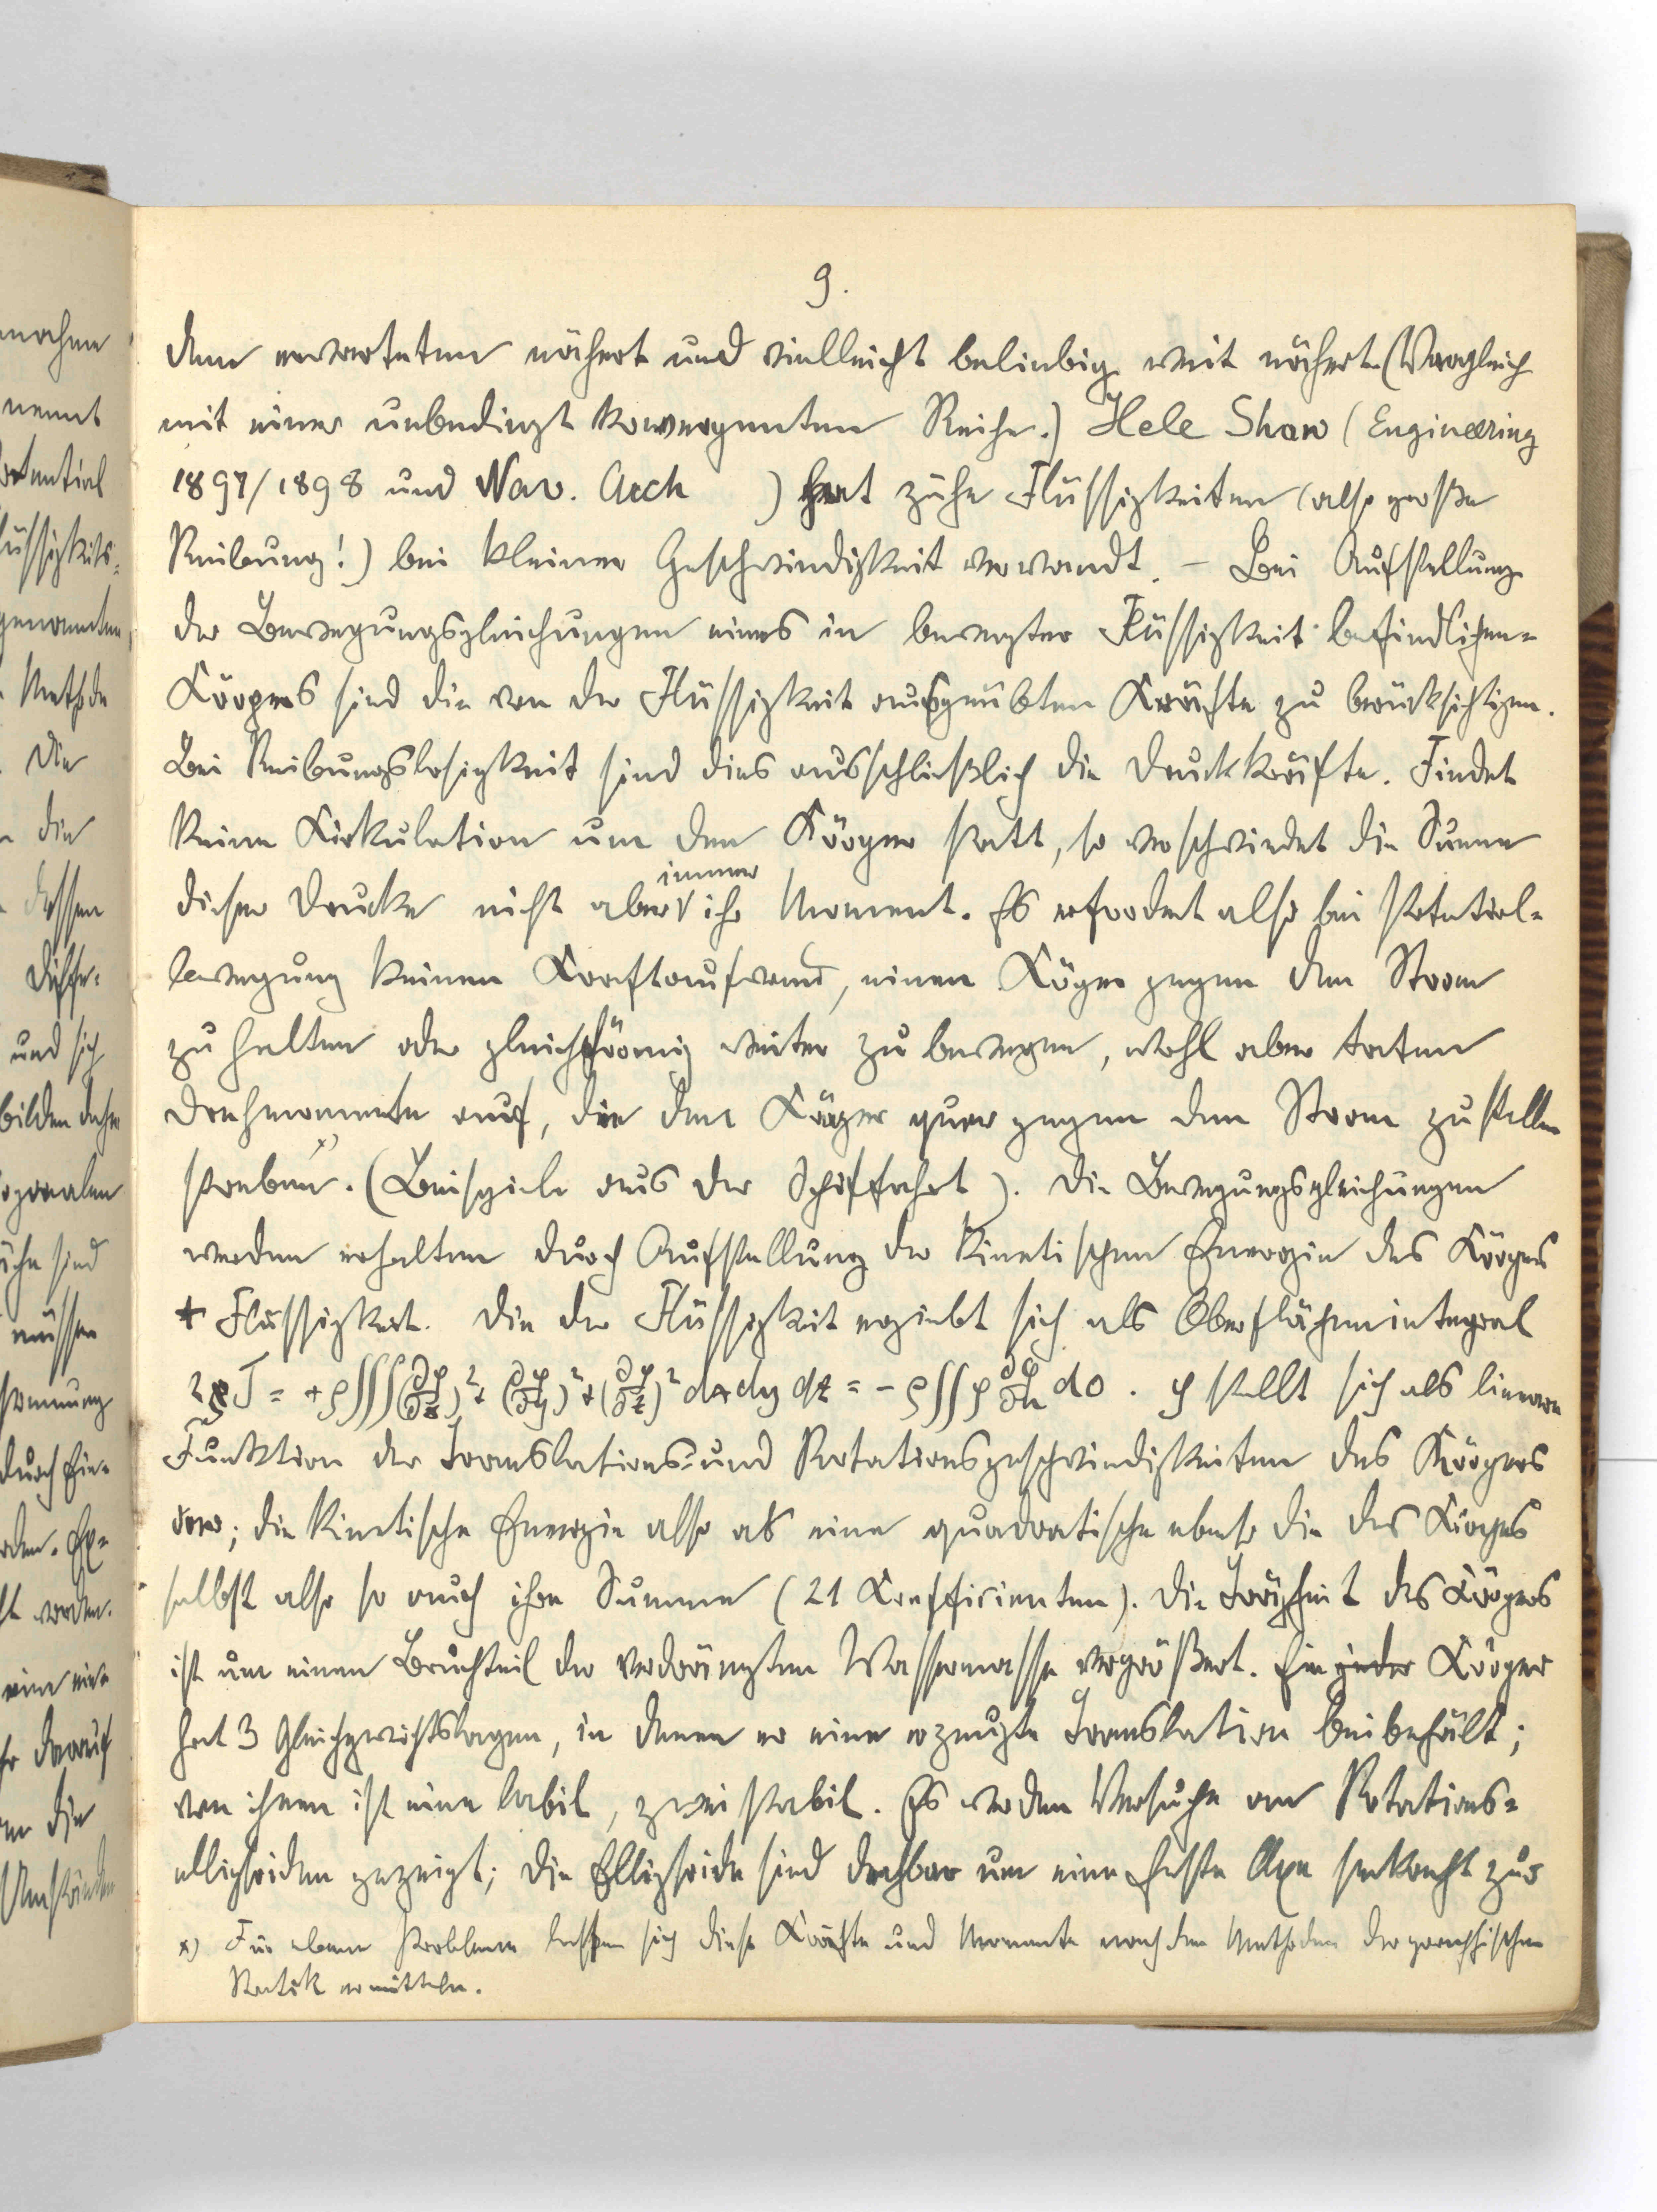 9.
dem erwarteten nähert und vielleicht beliebig weit nähert (Vergleich
mit einer unbedingt konvergenten Reihe.) Hele Shaw (Engineering
1897/1898 und Nav. Arch ) hat zähe Flüssigkeiten (also große
Reibung!) bei kleiner Geschwindigkeit verwandt. – Bei Aufstellung
der Bewegungsgleichungen eines in bewegter Flüssigkeit befindlichen
Körpers sind die von der Flüssigkeit ausgeübten Kräfte zu berücksichtigen.
Bei Reibungslosigkeit sind dies ausschließlich die Druckkräfte. Findet
keine Zirkulation um den Körper statt, so verschwindet die Summe
immer
dieser Drucke nicht aber ihr Moment. Es erfordert also bei Potential-
bewegung keinen Kraftaufwand, einen Köper gegen den Strom
zu halten oder gleichförmig weiter zu bewegen, wohl aber treten
Drehmomente auf, die den Körper quer gegen den Strom zu stellen
streben x). (Beispiele aus der Schiffahrt). Die Bewegungsgleichungen
werden erhalten durch Aufstellung der kinetischen Energie des Körpers
+ Flüssigkeit. Die der Flüssigkeit ergiebt sich als Oberflächenintegral
2 T = + ρ∫∫∫(∂φ/∂x)² + (∂φ/∂y)² + (∂φ/∂z)² dx dy dz = - ρ∫∫ φ ∂φ/∂n do. φ stellt sich als lineare
Funktion der Translations- und Rotationsgeschwindigkeiten des Körpers
dar; die kinetische Energie also als eine quadratische ebenso die des Körpers
selbst also so auch ihre Summe (21 Koefficienten). Die Trägheit des Körpers
ist um einen Bruchteil der verdrängten Wassermasse vergrößert. Ein jeder Körper
hat 3 Gleichgewichtslagen, in denen er eine erzeugte Translation beibehält;
von ihnen ist eine labil, zwei stabil. Es werden Versuche an Rotations-
ellipsoiden gezeigt; die Ellipsoide sind drehbar um eine feste Axe senkrecht zur
x) Für ebene Probleme lassen sich diese Kräfte und Momente nach den Methoden der graphischen
Statik ermitteln.